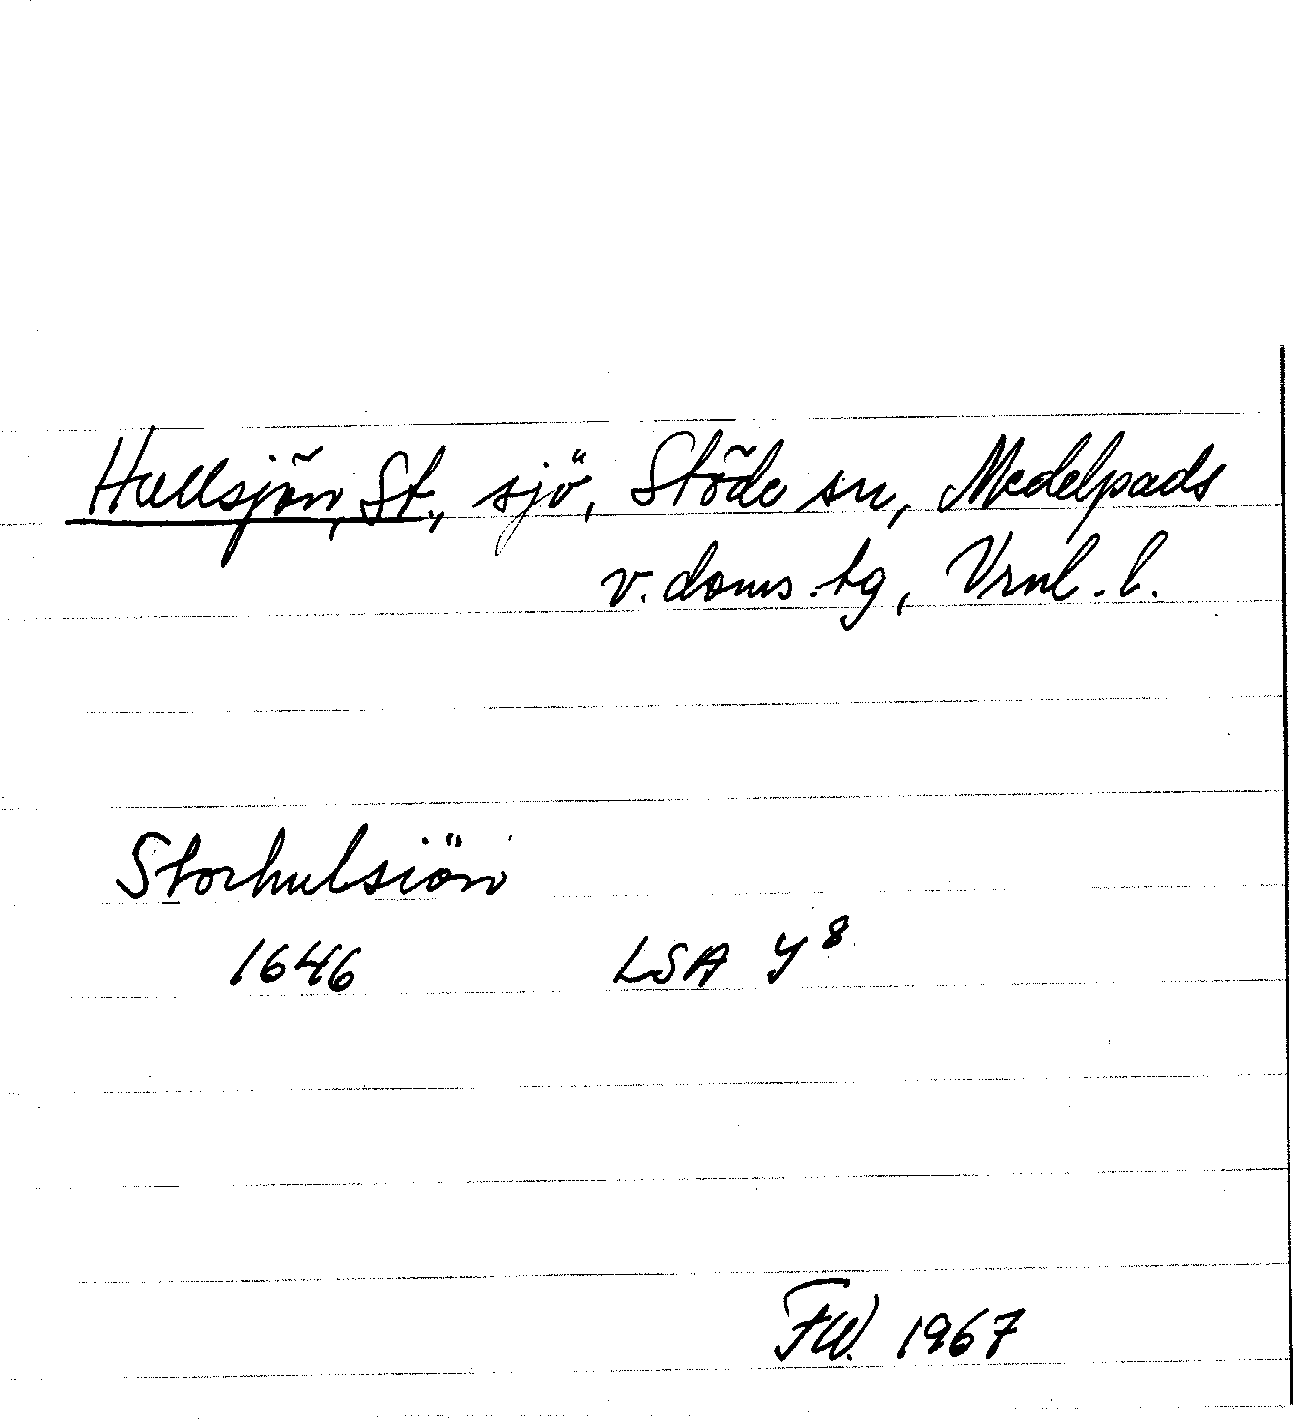 Hullsjön, St., sjö, Stöde sn, Medelpads
v. doms. tg, Vrnl. l.
Storhulsiön
1646 LSA Y 8
FW. 1967